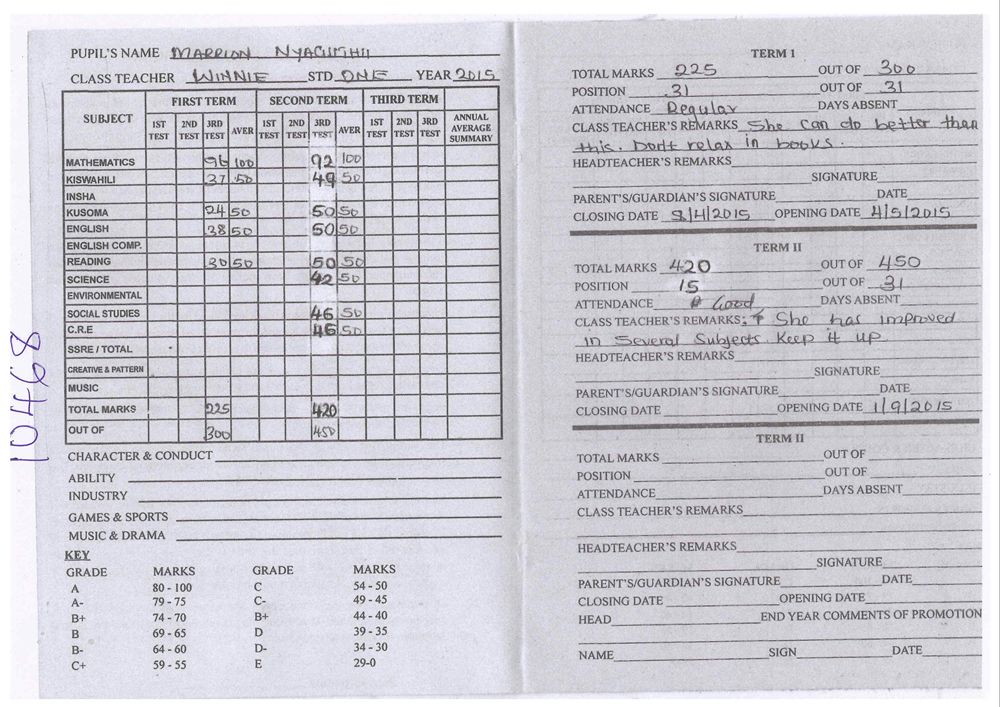 PUPIL'S NAME MARRION NYACHSHII
CLASS TEACHER WINNIE STD ONE YEAR 2015
SUBJECT FIRST TERM SECOND TERM THIRD TERM
1ST TEST 2ND TEST 3RD TEST AVER 1ST TEST 2ND TEST 3RD TEST AVER 1ST TEST 2ND TEST 3RD TEST ANNUAL AVERAGE SUMMARY
MATHEMATICS 96 100 92 100
KISWAHILI 37 50 49 50
INSHA
KUSOMA 24 50 50 50
ENGLISH 38 50 50 50
ENGLISH COMP.
READING 30 50 50 50
SCIENCE 42 50
ENVIRONMENTAL
SOCIAL STUDIES 46 50
C.R.E 46 50
SSRE / TOTAL
CREATIVE & PATTERN
MUSIC
TOTAL MARKS 225 420
OUT OF 300 450
CHARACTER & CONDUCT
ABILITY
INDUSTRY
GAMES & SPORTS
MUSIC & DRAMA
KEY
GRADE MARKS GRADE MARKS
A 80 - 100 C 54 - 50
A- 79 - 75 C- 49 - 45
B+ 74 - 70 B+ 44 - 40
B 69 - 65 D 39 - 35
B- 64 - 60 D- 34 - 30
C+ 59 - 55 E 29-0
10468
TERM 1
TOTAL MARKS 225 OUT OF 300
POSITION 31 OUT OF 31
ATTENDANCE Regular DAYS ABSENT
CLASS TEACHER'S REMARKS She can do better than
this. Don't relax in books.
HEADTEACHER'S REMARKS
SIGNATURE
PARENT'S/GUARDIAN'S SIGNATURE DATE
CLOSING DATE 9/4/2015 OPENING DATE 4/5/2015
TERM II
TOTAL MARKS 420 OUT OF 450
POSITION 15 OUT OF 31
ATTENDANCE Good DAYS ABSENT
CLASS TEACHER'S REMARKS: She has improved
in several subjects. Keep it up
HEADTEACHER'S REMARKS
SIGNATURE
PARENT'S/GUARDIAN'S SIGNATURE DATE
CLOSING DATE OPENING DATE 1/9/2015
TERM II
TOTAL MARKS OUT OF
POSITION OUT OF
ATTENDANCE DAYS ABSENT
CLASS TEACHER'S REMARKS
HEADTEACHER'S REMARKS
SIGNATURE
PARENT'S/GUARDIAN'S SIGNATURE DATE
CLOSING DATE OPENING DATE
HEAD END YEAR COMMENTS OF PROMOTION
NAME SIGN DATE